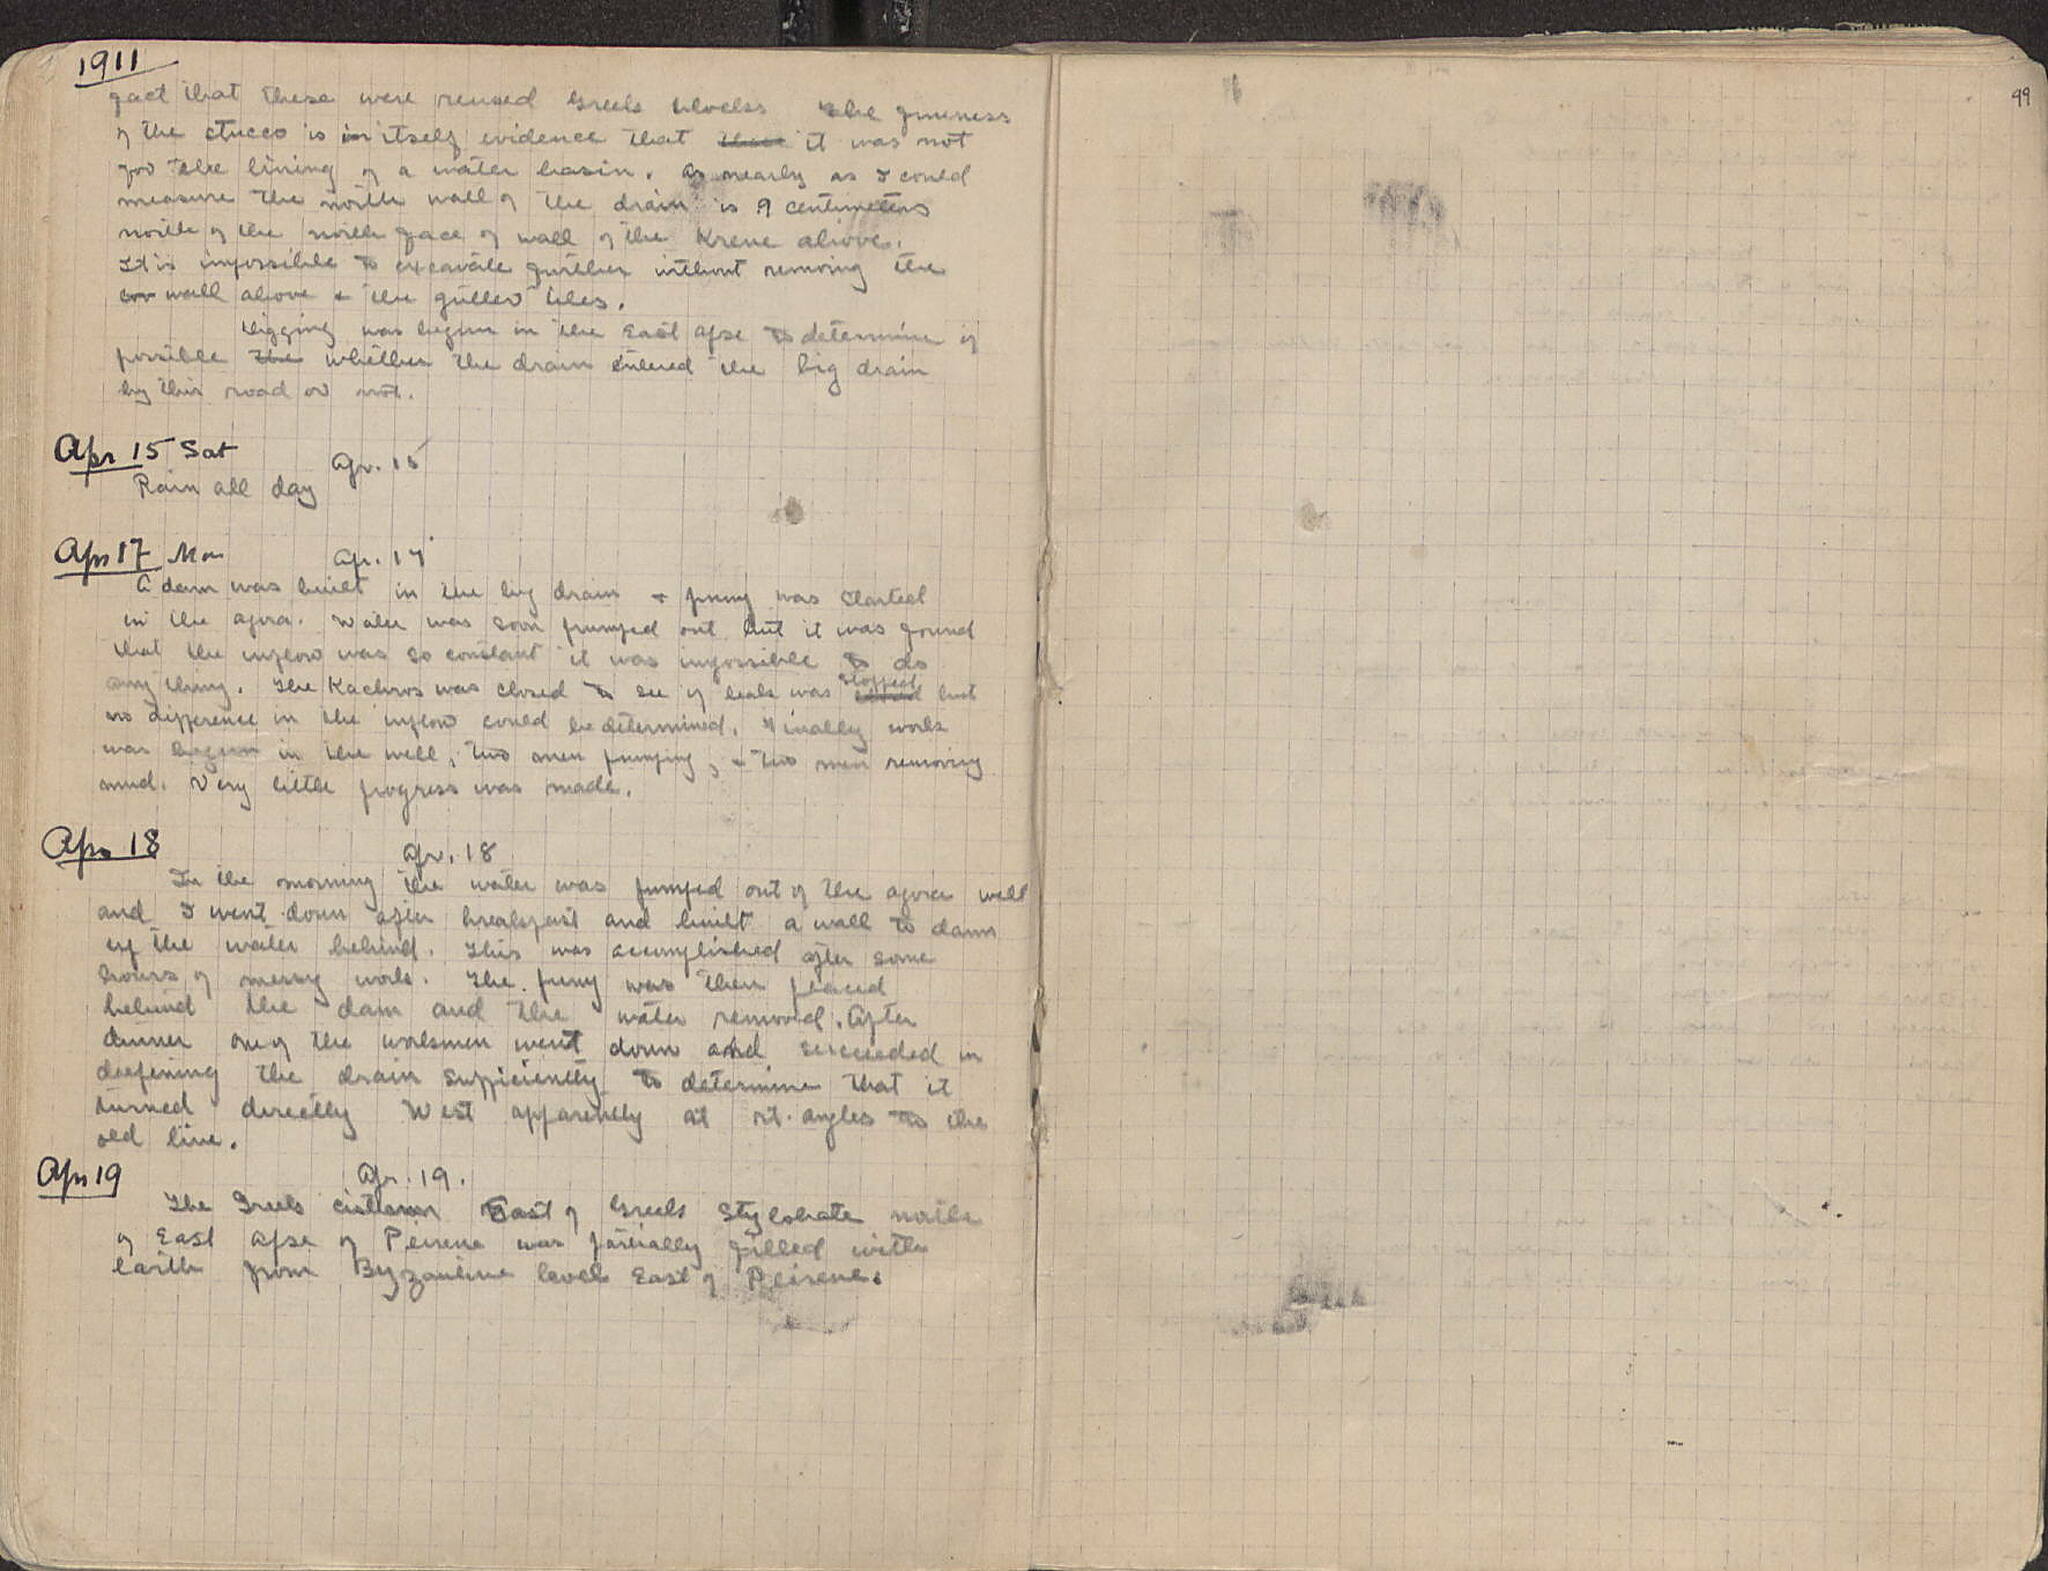 1911
fact that these were reused Greek blocks The fineness
of the stucco is in itself evidence that it was not
for the lining of a water basin. As nearly as I could
measure the north wall of the drain is 9 centimeters
north of the north face of wall of the Krene above.
It is impossible to excavate further without removing the
wall above & the gutter tiles.
Digging was begun in the East apse to determine if
possible the whether the drain entered the big drain
by this road or not.
Apr 15 Sat
Apr. 15
Rain all day
Apr 17 Mon
Apr. 17
A dam was built in the big drain & pump was started
in the agora. Water was soon pumped out but it was found
that the inflow was so constant it was impossible to do
any thing. The Kachros was closed to see if leak was stopped but
no difference in the inflow could be determined. Finally work
was begun in the well, two men pumping, & two men removing
mud. Very little progress was made.
Apr 18
Apr. 18
In the morning the water was pumped out of the agora well
and I went down after breakfast and built a wall to dam
up the water behind. This was accomplished after some
hours of messy work. The pump was then placed
behind the dam and the water removed. After
dinner one of the workmen went down and succeeded in
deepening the drain sufficiently to determine that it
turned directly West apparently at rt. angles to the
old line.
Apr 19
Apr. 19.
The Greek cistern East of Greek Stylobate north
of East apse of Peirene was partially filled with
earth from Byzantine level East of Peirene.
99